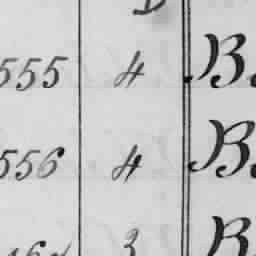 555 4 B.
556 4 B.
3 B